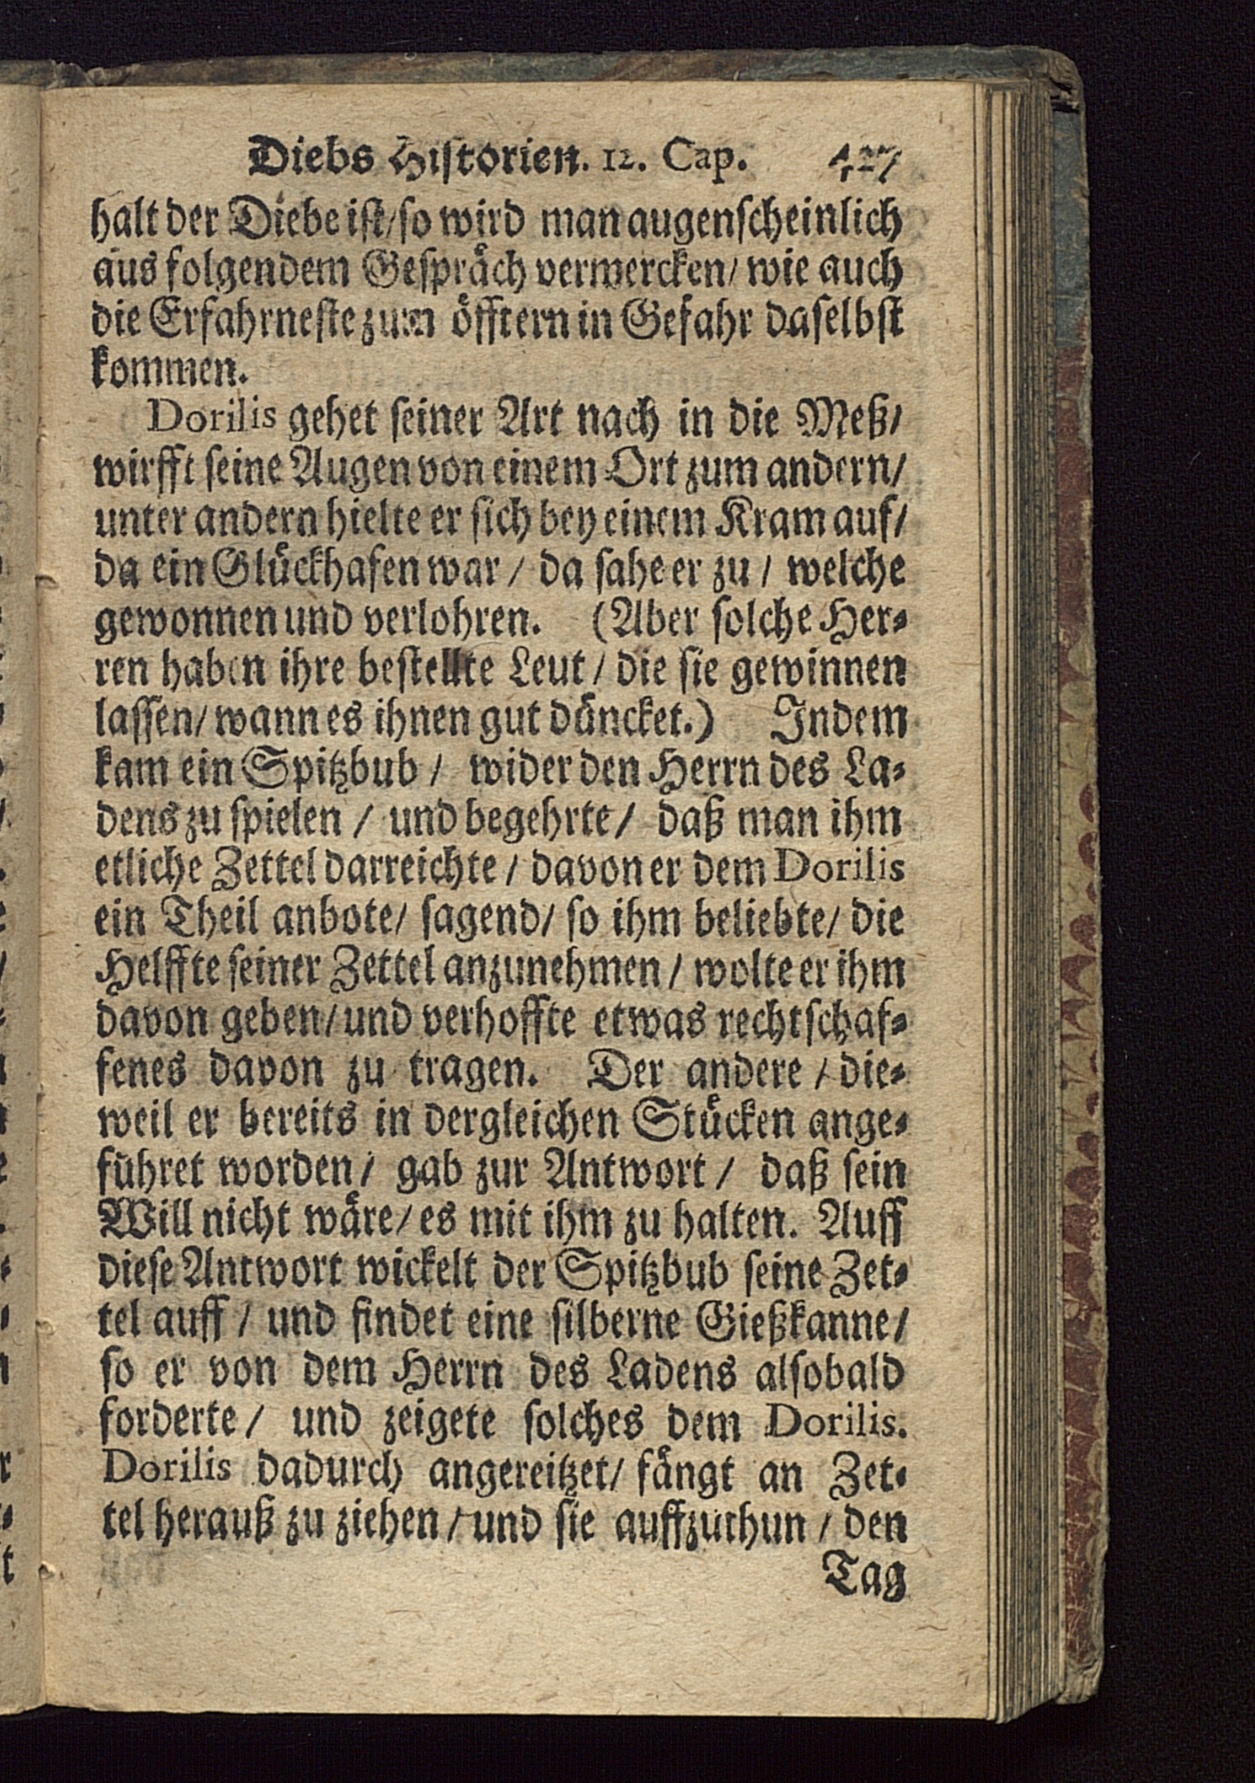 Diebs Historien. 12. Cap. 427
halt der Diebe ist/ so wird man augenscheinlich
aus folgendem Gespräch verwercken/ wie auch
die Erfahrneste zum öfftern in Gefahr daselbst
kommen.
Dorilis gehet seiner Art nach in die Meß/
wirfft seine Augen von einem Ort zum andern/
unter andern hielte er sich bey einem Kram auf/
da ein Glückhafen war / da sahe er zu / welche
gewonnen und verlohren. (Aber solche Her-
ren haben ihre bestellte Leut / die sie gewinnen
lassen/ wann es ihnen gut düncket.) Indem
kam ein Spitzbub / wider den Herrn des La-
dens zu spielen / und begehrte / daß man ihm
etliche Zettel darreichte / davon er dem Dorilis
ein Theil anbote/ sagend/ so ihm beliebte/ die
Helffte seiner Zettel anzunehmen / wolte er ihm
davon geben/ und verhoffte etwas rechtschaf-
fenes davon zu tragen. Der andere / die-
weil er bereits in dergleichen Stücken ange-
führet worden / gab zur Antwort / daß sein
Will nicht wäre/ es mit ihm zu halten. Auff
diese Antwort wickelt der Spitzbub seine Zet-
tel auff / und findet eine silberne Gießkanne/
so er von dem Herrn des Ladens alsobald
forderte / und zeigete solches dem Dorilis.
Dorilis dadurch angereitzet/ fängt an Zet-
tel herauß zu ziehen / und sie auffzuthun / den
Tag